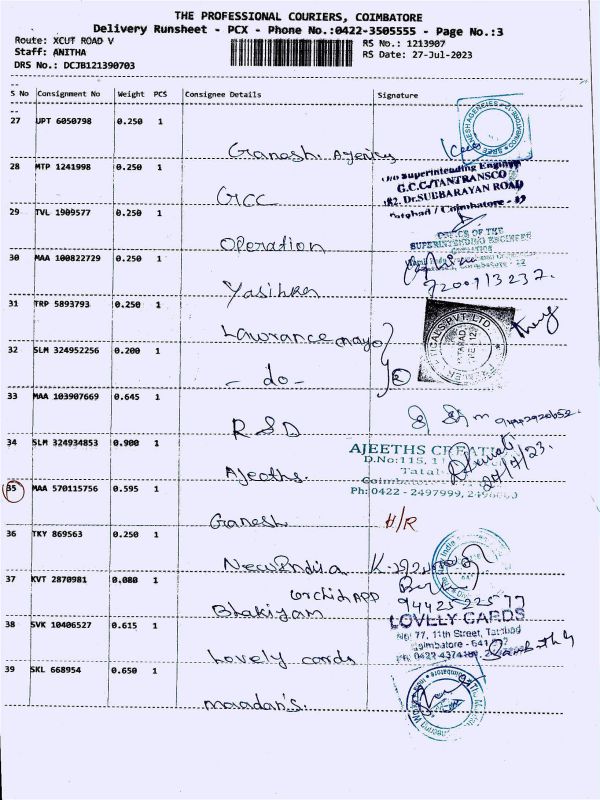 THE PROFESSIONAL COURIERS, COIMBATORE
Delivery Runsheet - PCX - Phone No.:0422-3505555 - Page No.:3
Route: XCUT ROAD V
RS No.: 1213907
Staff: ANITHA
RS Date: 27-Jul-2023
DRS No.: DCJB121390703
S No Consignment No Weight PCS Consignee Details Signature
27 UPT 6050798 0.250 1
Ganesh Agency
28 MTP 1241998 0.250 1
O/o Superintending Engineer
G.C.C/TANTRANSCO
182, Dr.SUBBARAYAN ROAD
Tatabad / Coimbatore - 12
GCC
29 TVL 1909577 0.250 1
OFFICE OF THE
SUPERINTENDING ENGINEER
Operation
30 MAA 100822729 0.250 1
7200913237.
Yasihka
31 TRP 5893793 0.250 1
Lawrance mayo
32 SLM 324952256 0.200 1
- do -
②
33 MAA 103907669 0.645 1
RSD
34 SLM 324934853 0.900 1
AJEETHS CREATI
D.No:115, 11
Tatab
Coimbatore
Ph: 0422 - 2497999,
27/7/23.
Ajeeths.
35 MAA 570115756 0.595 1
Ganesh H/R
36 TKY 869563 0.250 1
New India
37 KVT 2870981 0.080 1
orchid APP
Bhakiyam
9442522577
38 SVK 10406527 0.615 1
LOVELY CARDS
No: 77, 11th Street, Tatabad
Coimbatore - 641
Lovely cards
39 SKL 668954 0.650 1